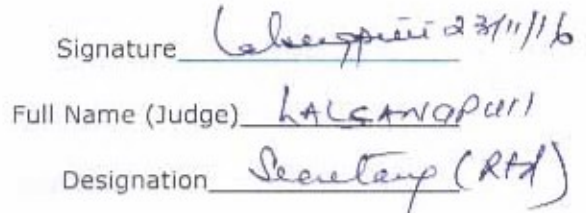 Signature 23/11/16
Full Name (Judge) LALSANGPUII
Designation Secretary